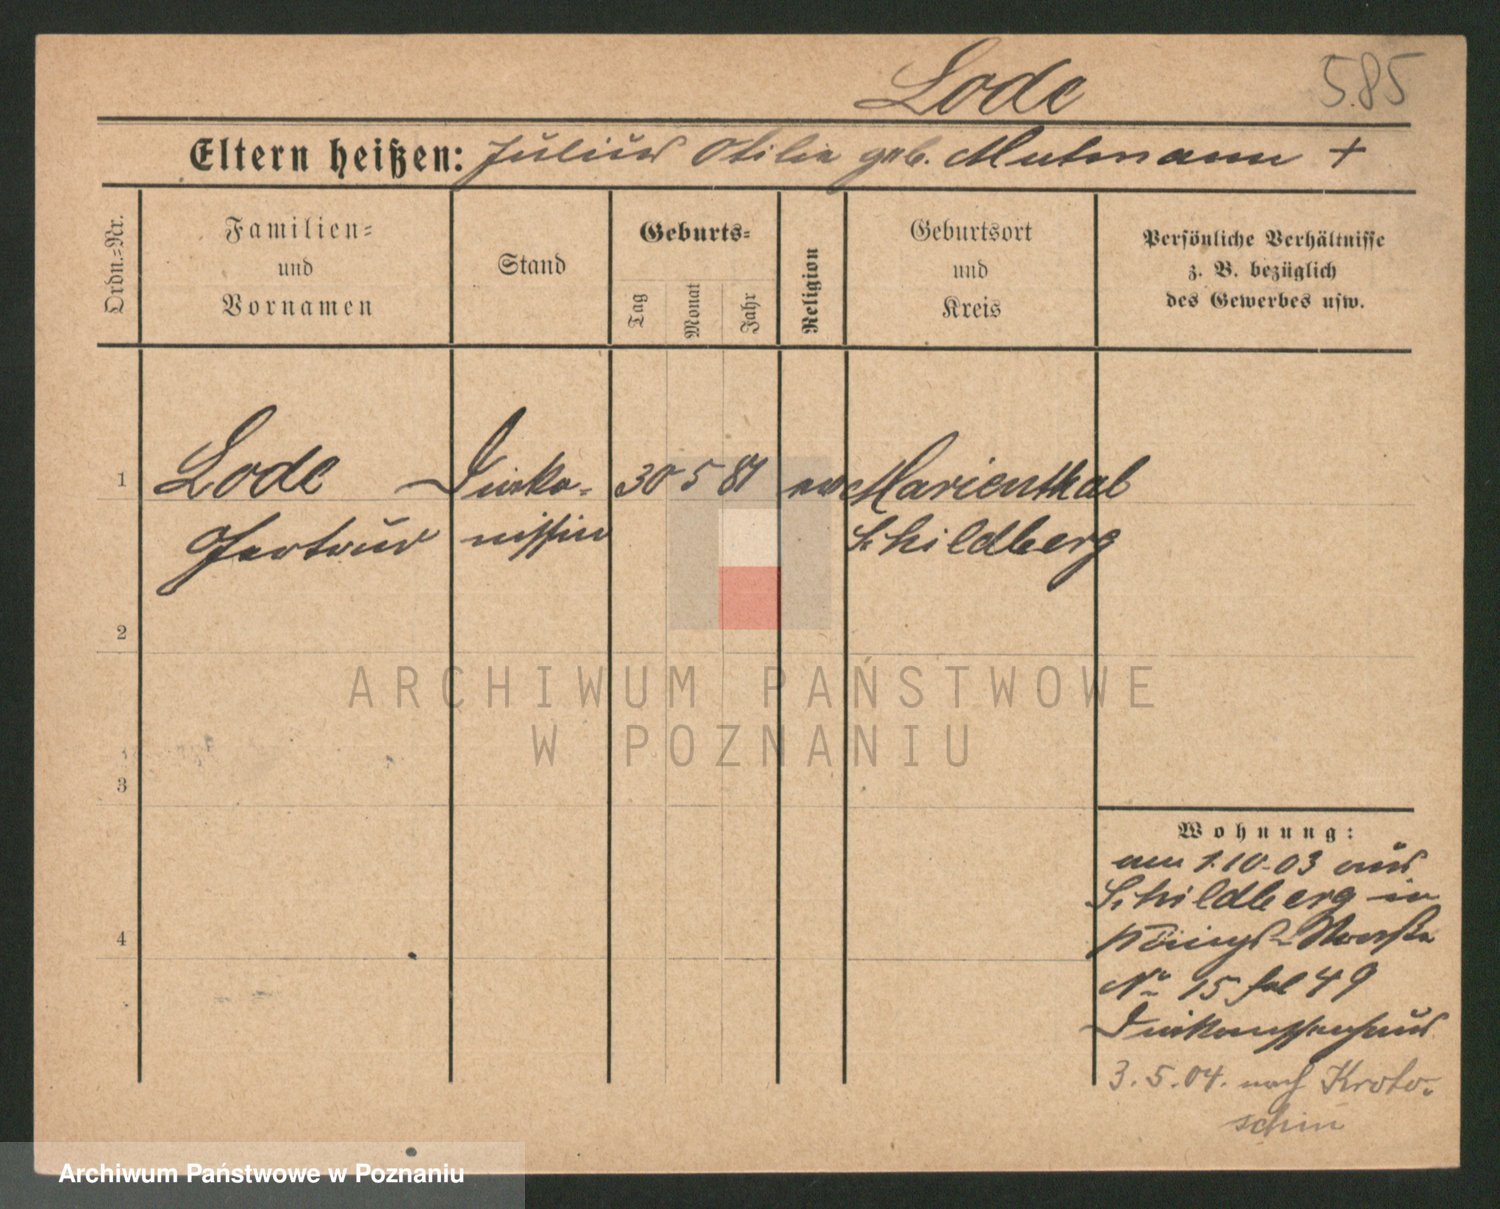 Lode
585
Eltern heißen: Julius Otilie geb. Mutmann +
Ordn.-Nr.
Familien-
und
Vornamen
Stand
Geburts-
Tag
Monat
Jahr
Religion
Geburtsort
und
Kreis
Persönliche Verhältnisse
z. B. bezüglich
des Gewerbes usw.
1 Lode Diako- 30 5 81 ev Marienthal
Gertrud nissin Schildberg
2
3
4
Wohnung:
am 1.10.03 aus
Schildberg in
Königs-Straße
No 15. bei 49
Diakonissenhaus
3.5.04. nach Kroto-
schin
ARCHIWUM PAŃSTWOWE
W POZNANIU
Archiwum Państwowe w Poznaniu